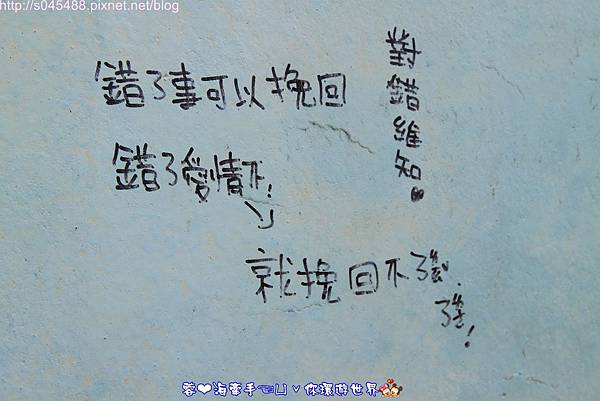 http://s045488.pixnet.net/blog
錯了事可以挽回
錯了愛情不!
就挽回不了
對錯維知
蓉❤海牽手
你環遊世界